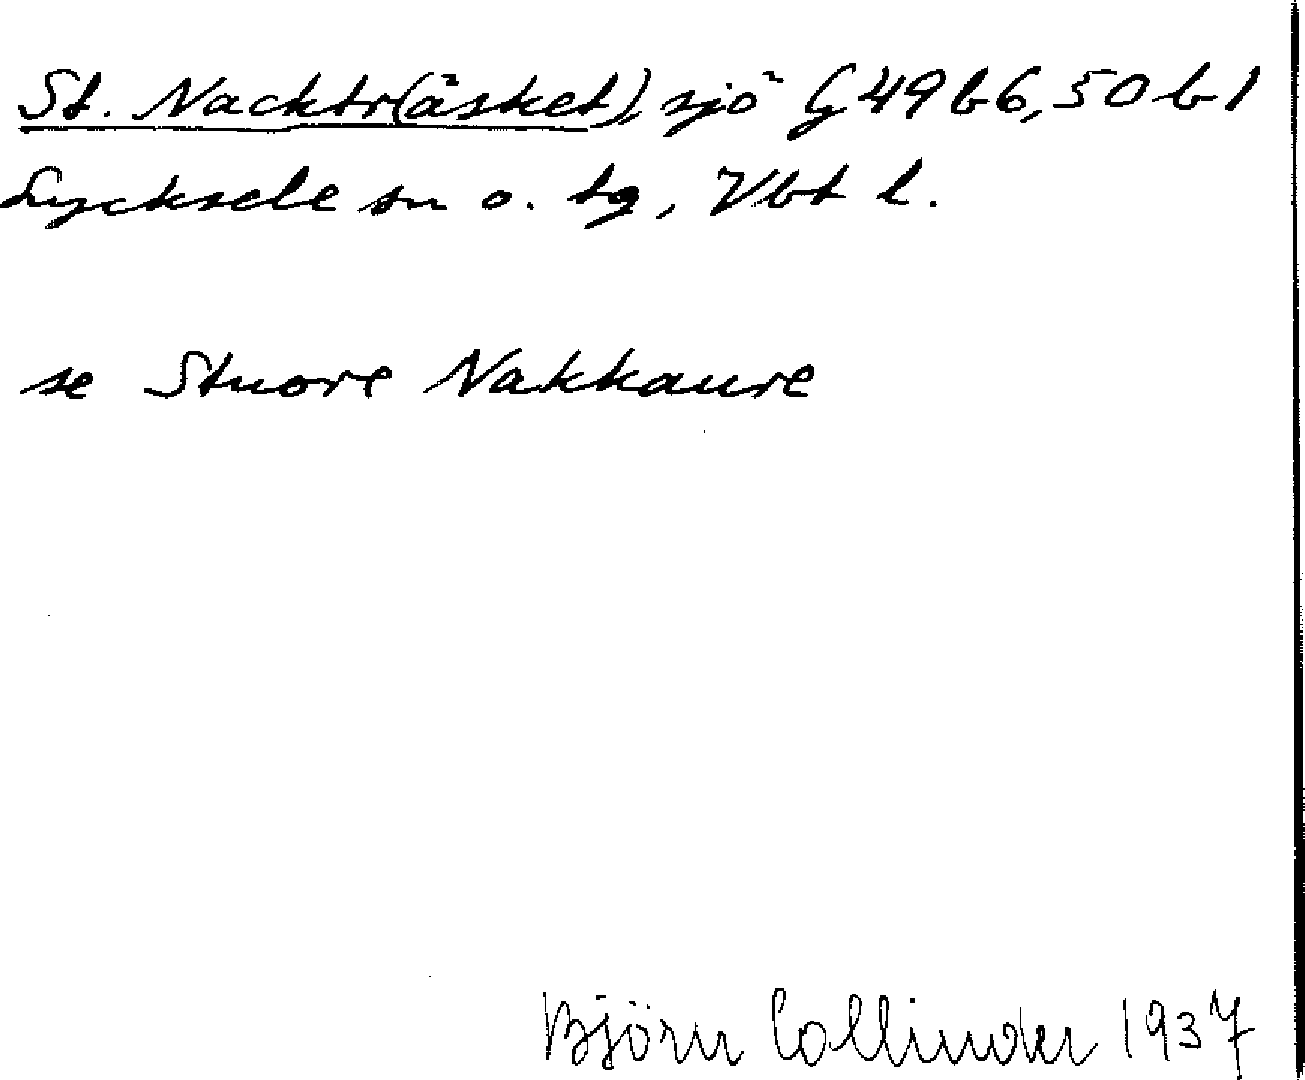 St. Nacktr(äsket), sjö G 49 b 6, 50 b 1
Lycksele sn o. tg, Vbt l.
se Stuore Nakkaure
Björn Collinder 1937